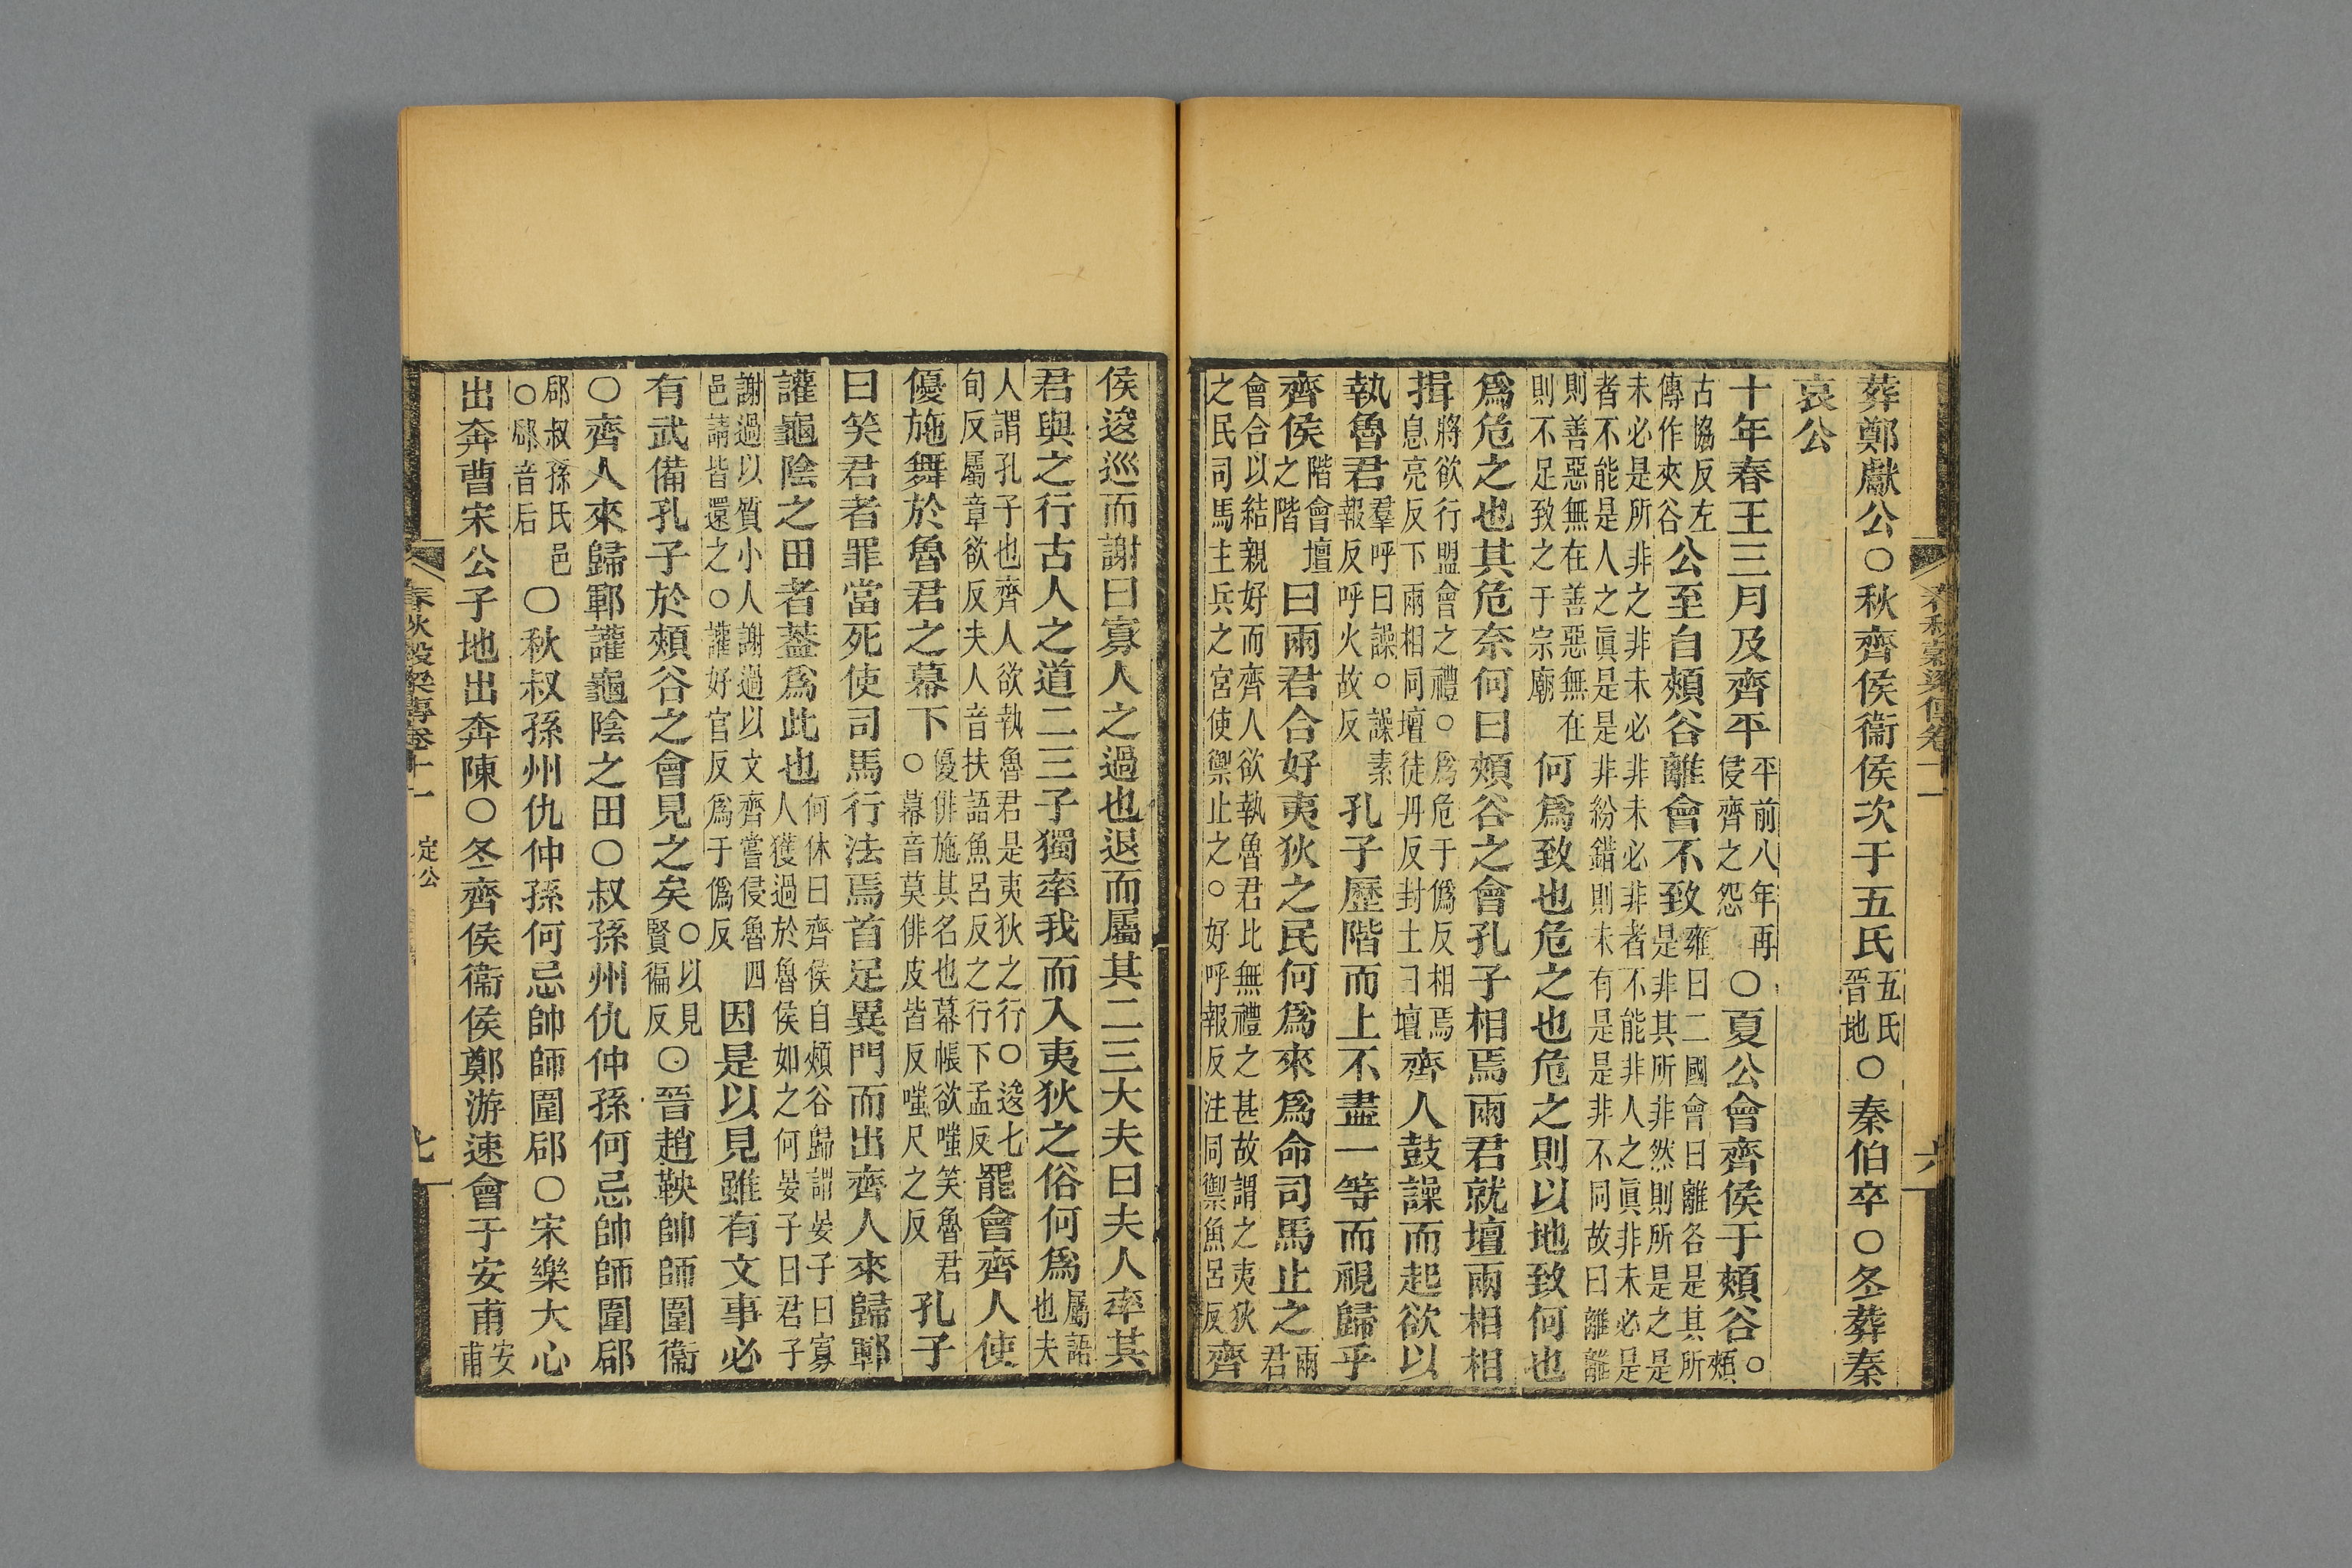 葬鄭獻公○秋齊侯衞侯次于五氏五氏晉地○秦伯卒○冬葬秦
哀公
十年春王三月及齊平平前八年再侵齊之怨○夏公會齊侯于頰谷○頰
古協反左傳作夾谷公至自頰谷離會不致雍曰二國會曰離各是其所是非其所非然則所是之是
未必是所非之非未必非未必非者不能非人之眞非未必是者不能是人之眞是是非紛錯則未有是是非不同故曰離離
則善惡無在善惡無在則不足致之于宗廟何爲致也危之也危之則以地致何也
爲危之也其危奈何曰頰谷之會孔子相焉兩君就壇兩相相
揖將欲行盟會之禮○爲危于僞反相焉息亮反下兩相同壇徒丹反封土曰壇齊人鼓譟而起欲以
執魯君羣呼曰譟○譟素報反呼火故反孔子歷階而上不盡一等而視歸乎
齊侯階會壇之階曰兩君合好夷狄之民何爲來爲命司馬止之兩君
會合以結親好而齊人欲執魯君比無禮之甚故謂之夷狄之民司馬主兵之官使禦止之○好呼報反注同禦魚呂反齊
侯逡巡而謝曰寡人之過也退而屬其二三大夫曰夫人率其
君與之行古人之道二三子獨率我而入夷狄之俗何爲屬語也夫
人謂孔子也齊人欲執魯君是夷狄之行○逡七旬反屬章欲反夫人音扶語魚呂反之行下孟反罷會齊人使
優施舞於魯君之幕下優俳施其名也幕帳欲嗤笑魯君○幕音莫俳皮皆反嗤尺之反孔子
曰笑君者罪當死使司馬行法焉首足異門而出齊人來歸鄆
讙龜陰之田者蓋爲此也何休曰齊侯自頰谷歸謂晏子曰寡人獲過於魯侯如之何晏子曰君子
謝過以質小人謝過以文齊嘗侵魯四邑請皆還之○讙好官反爲于僞反因是以見雖有文事必
有武備孔子於頰谷之會見之矣○以見賢徧反○晉趙鞅帥師圍衞
○齊人來歸鄆讙龜陰之田○叔孫州仇仲孫何忌帥師圍郈
郈叔孫氏邑○郈音后○秋叔孫州仇仲孫何忌帥師圍郈○宋樂大心
出奔曹宋公子地出奔陳○冬齊侯衞侯鄭游速會于安甫安甫
春秋穀梁傳卷十一 定公 七